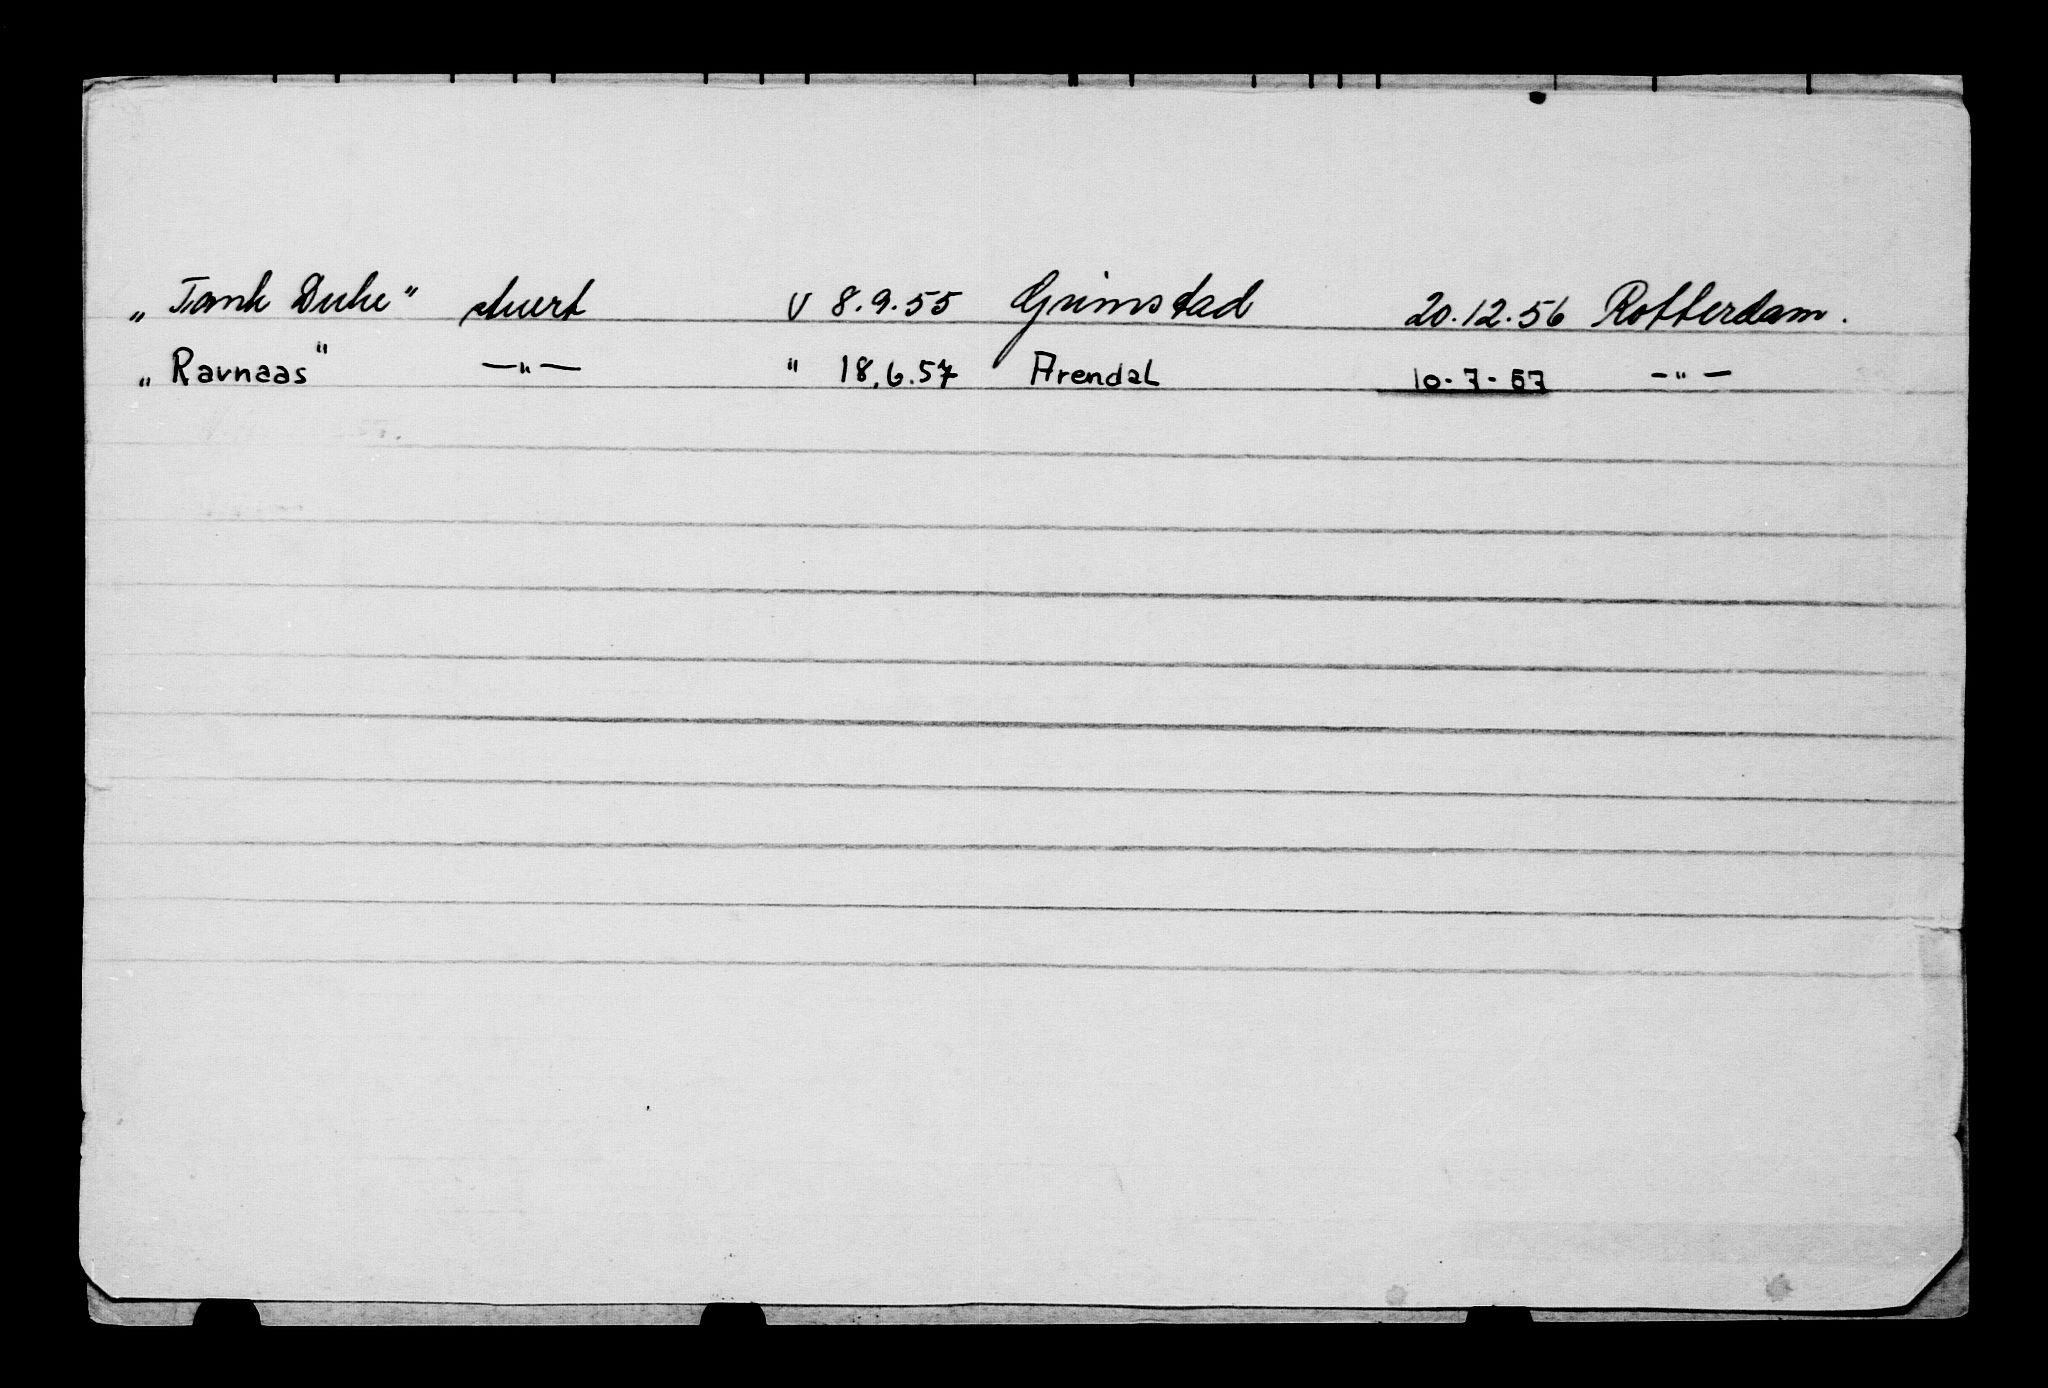 „ Tank Duke" stuert v 8.9.55 Grimstad 20.12.56 Rotterdam.
„ Ravnaas" —„— " 18.6.57 Arendal 10-7-57 —„—